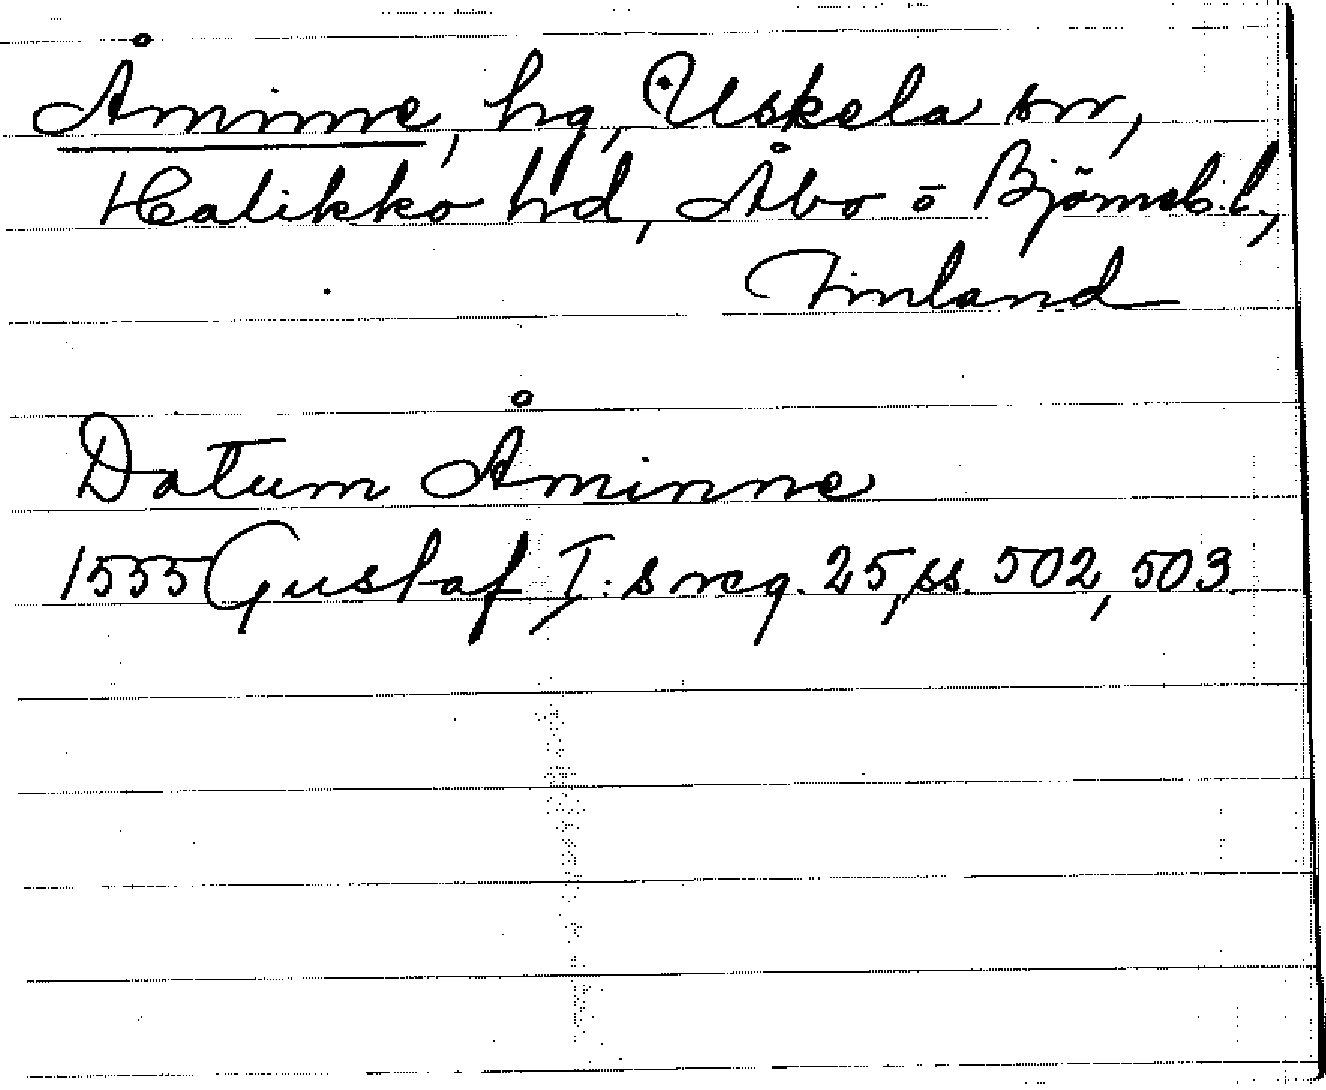 Åminne, hg, Uskela sn,
Halikko hd, Åbo o Björneb. l.,
Finland
Datum Åminne
1555 Gustaf I:s reg. 25, ss. 502, 503.